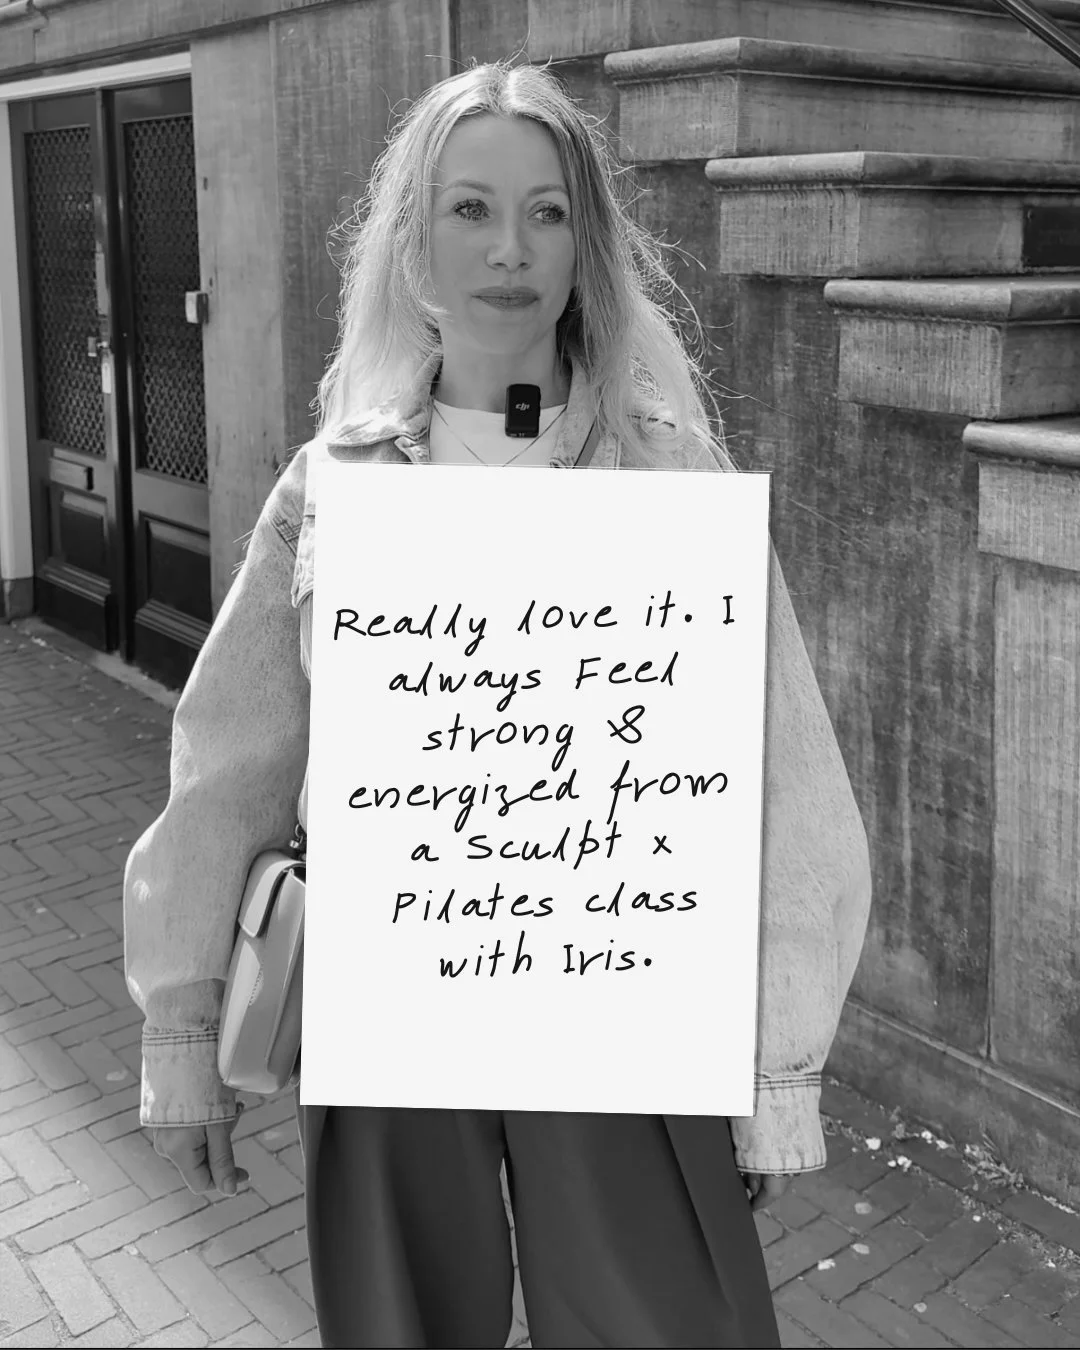 dji
Really love it. I
always Feel
strong &
energized from
a Sculpt x
Pilates class
with Iris.